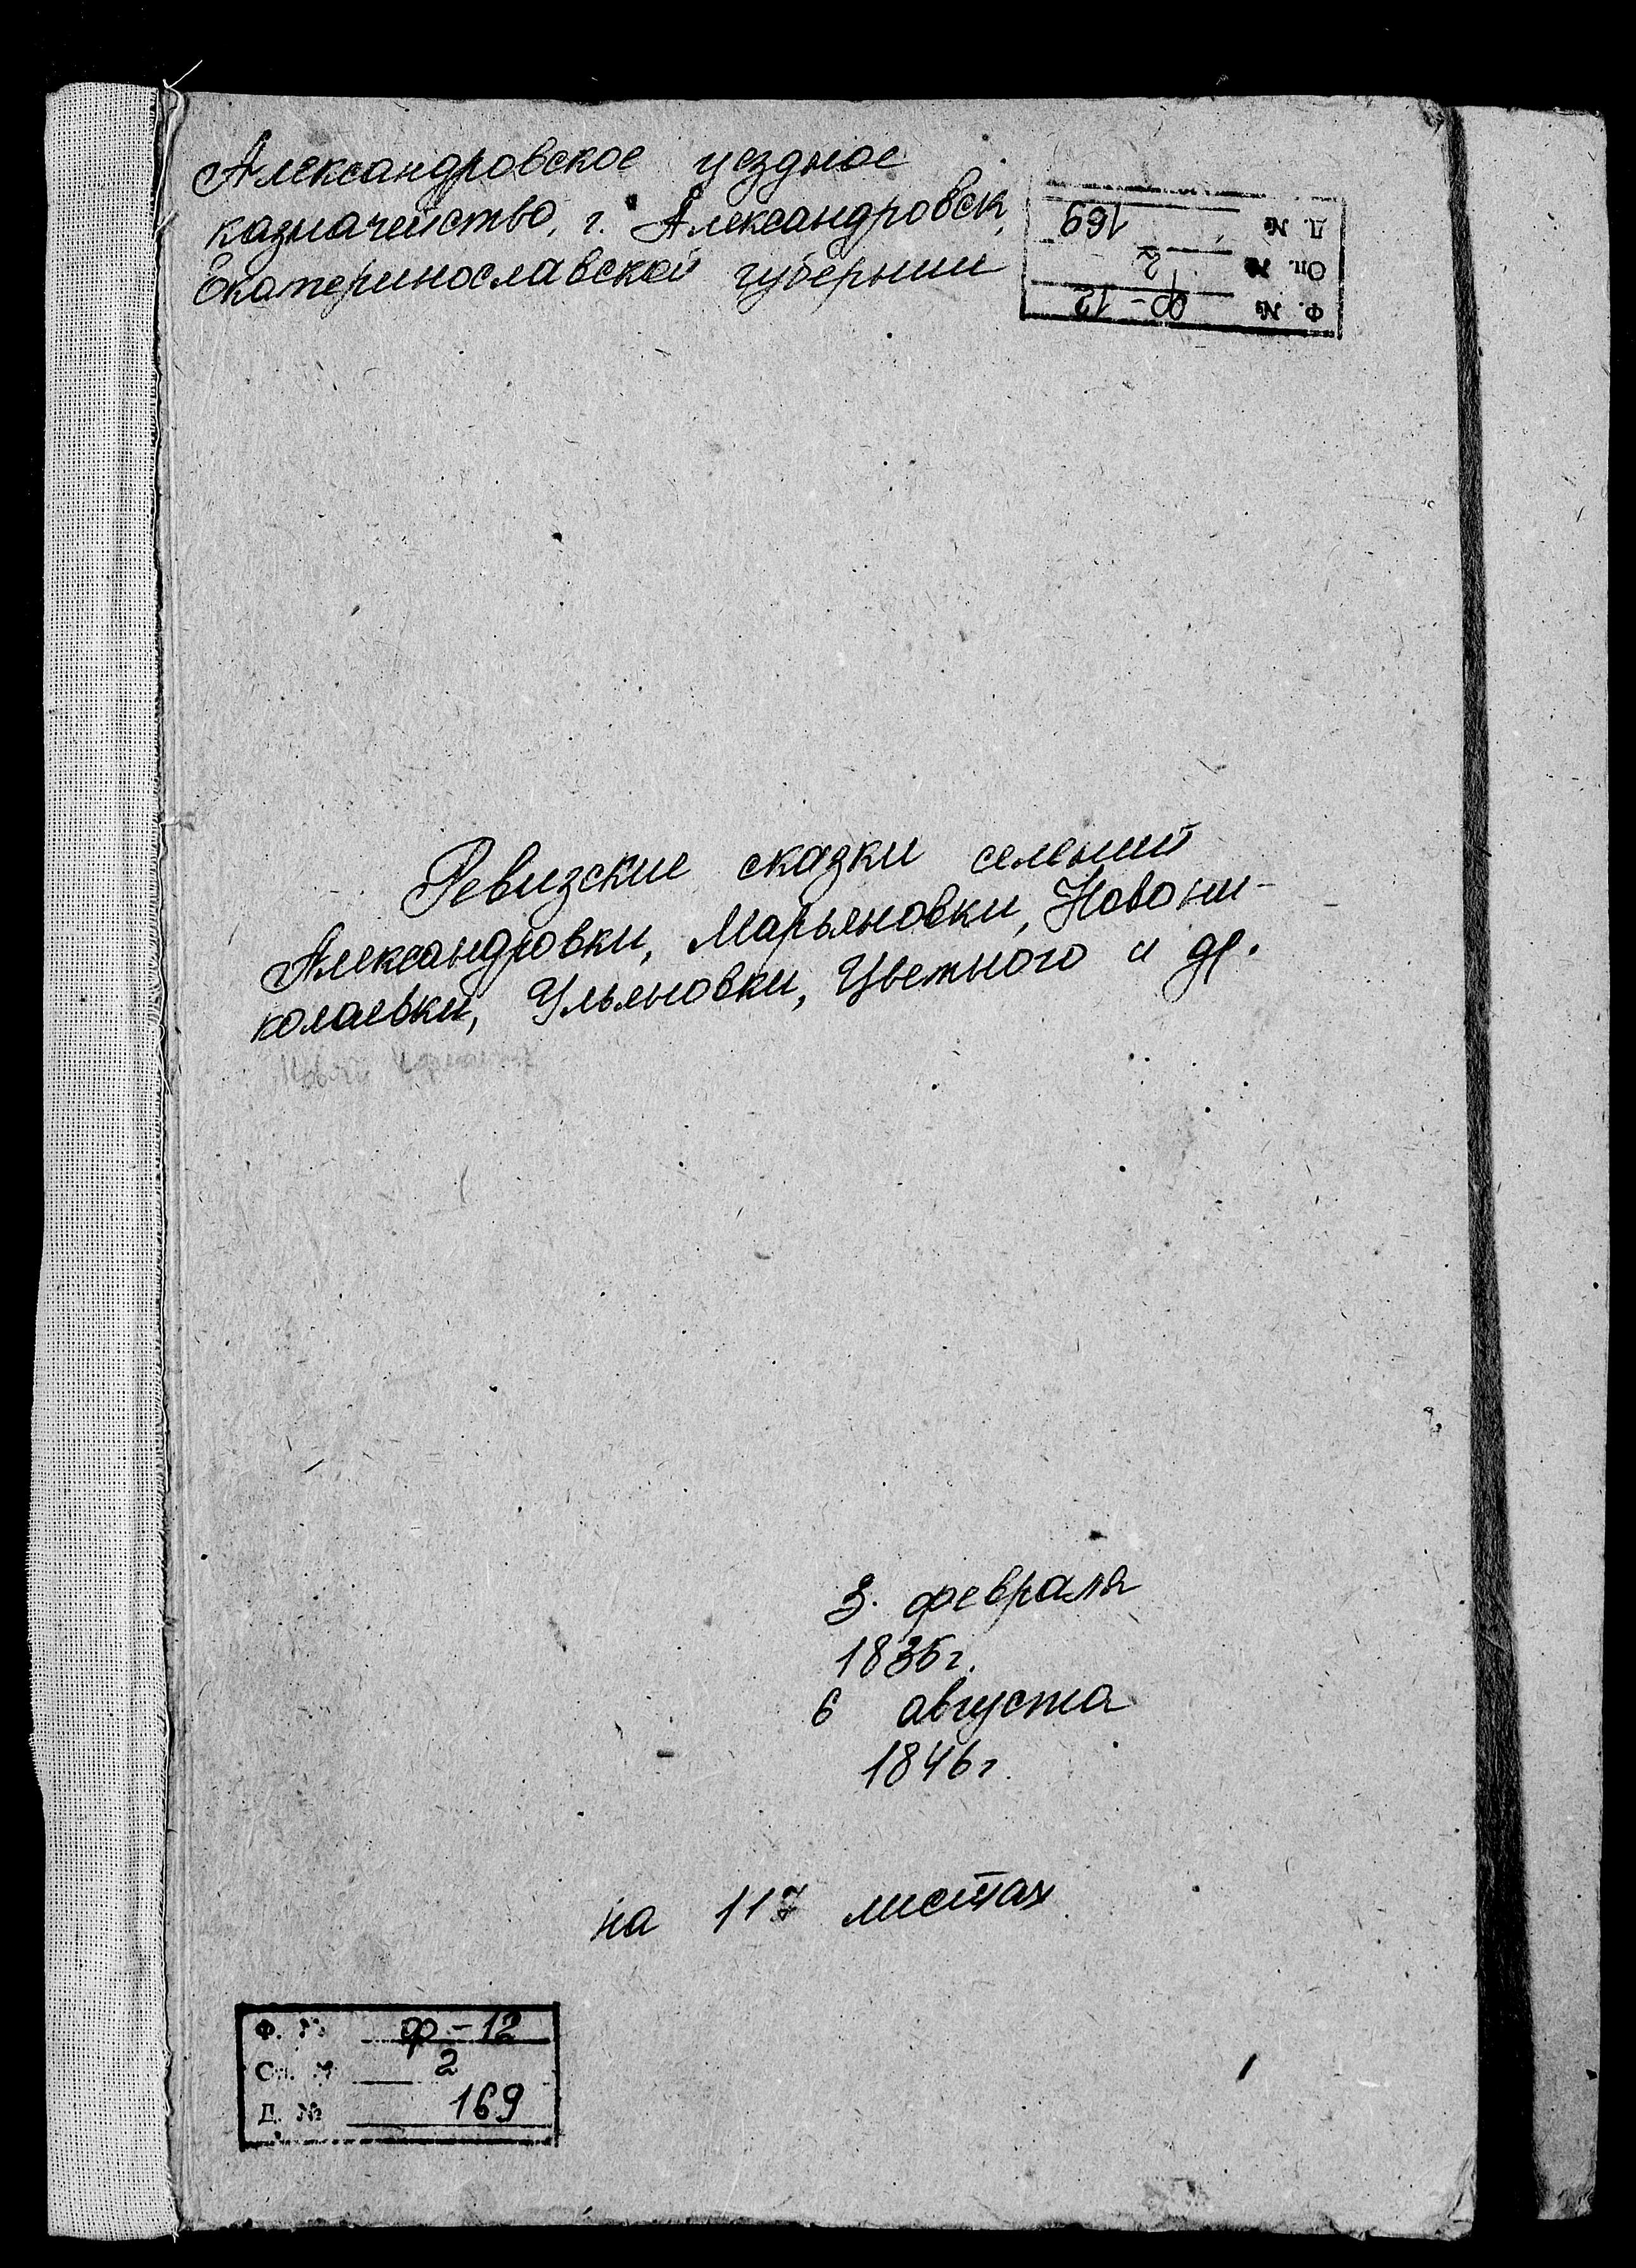 Александровское уездное
казначейство, г. Александровск,
Екатеринославской губернии
Д. № 169
Оп. № 2
Ф. № ф-12
Ревизские сказки селений
Александровки, Марьяновки, Новони-
колаевки, Ульяновки, Цветного и др.
3 февраля
1835г.
6 августа
1846г.
на 117 листах
Ф. № ф-12
Оп. № 2
Д. № 169